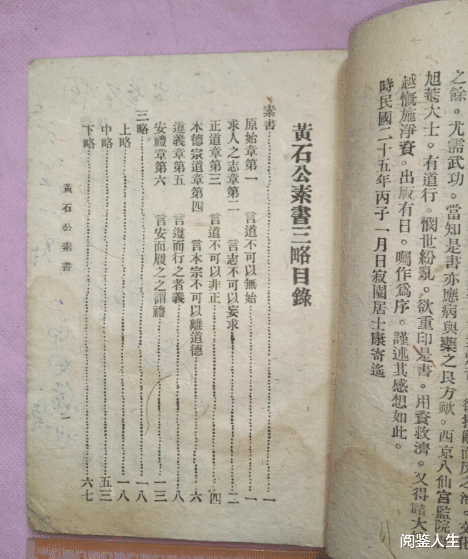 之餘。尤需武功。當知是書亦應病與藥之良方歟。西京八仙宮監院
旭葉大士。有道行。憫世紛亂。欲重印是書。用資救濟。又得諸大
越慨施淨資。出版有日。囑作爲序。謹述其感想如此。
時民國二十五年丙子一月日寂園居士康寄遙
黃石公素書三略目錄
素書……一
原始章第一 言道不可以無始……一
求人之志章第二 言志不可以妄求……二
正道章第三 言道不可以非正……四
本德宗道章第四 言本宗不可以離道德……六
遵義章第五 言遵而行之者義……八
安禮章第六 言安而履之之謂禮……一三
三略……一八
上略……一八
中略……五三
下略……六七
黃石公素書 一
阅鉴人生